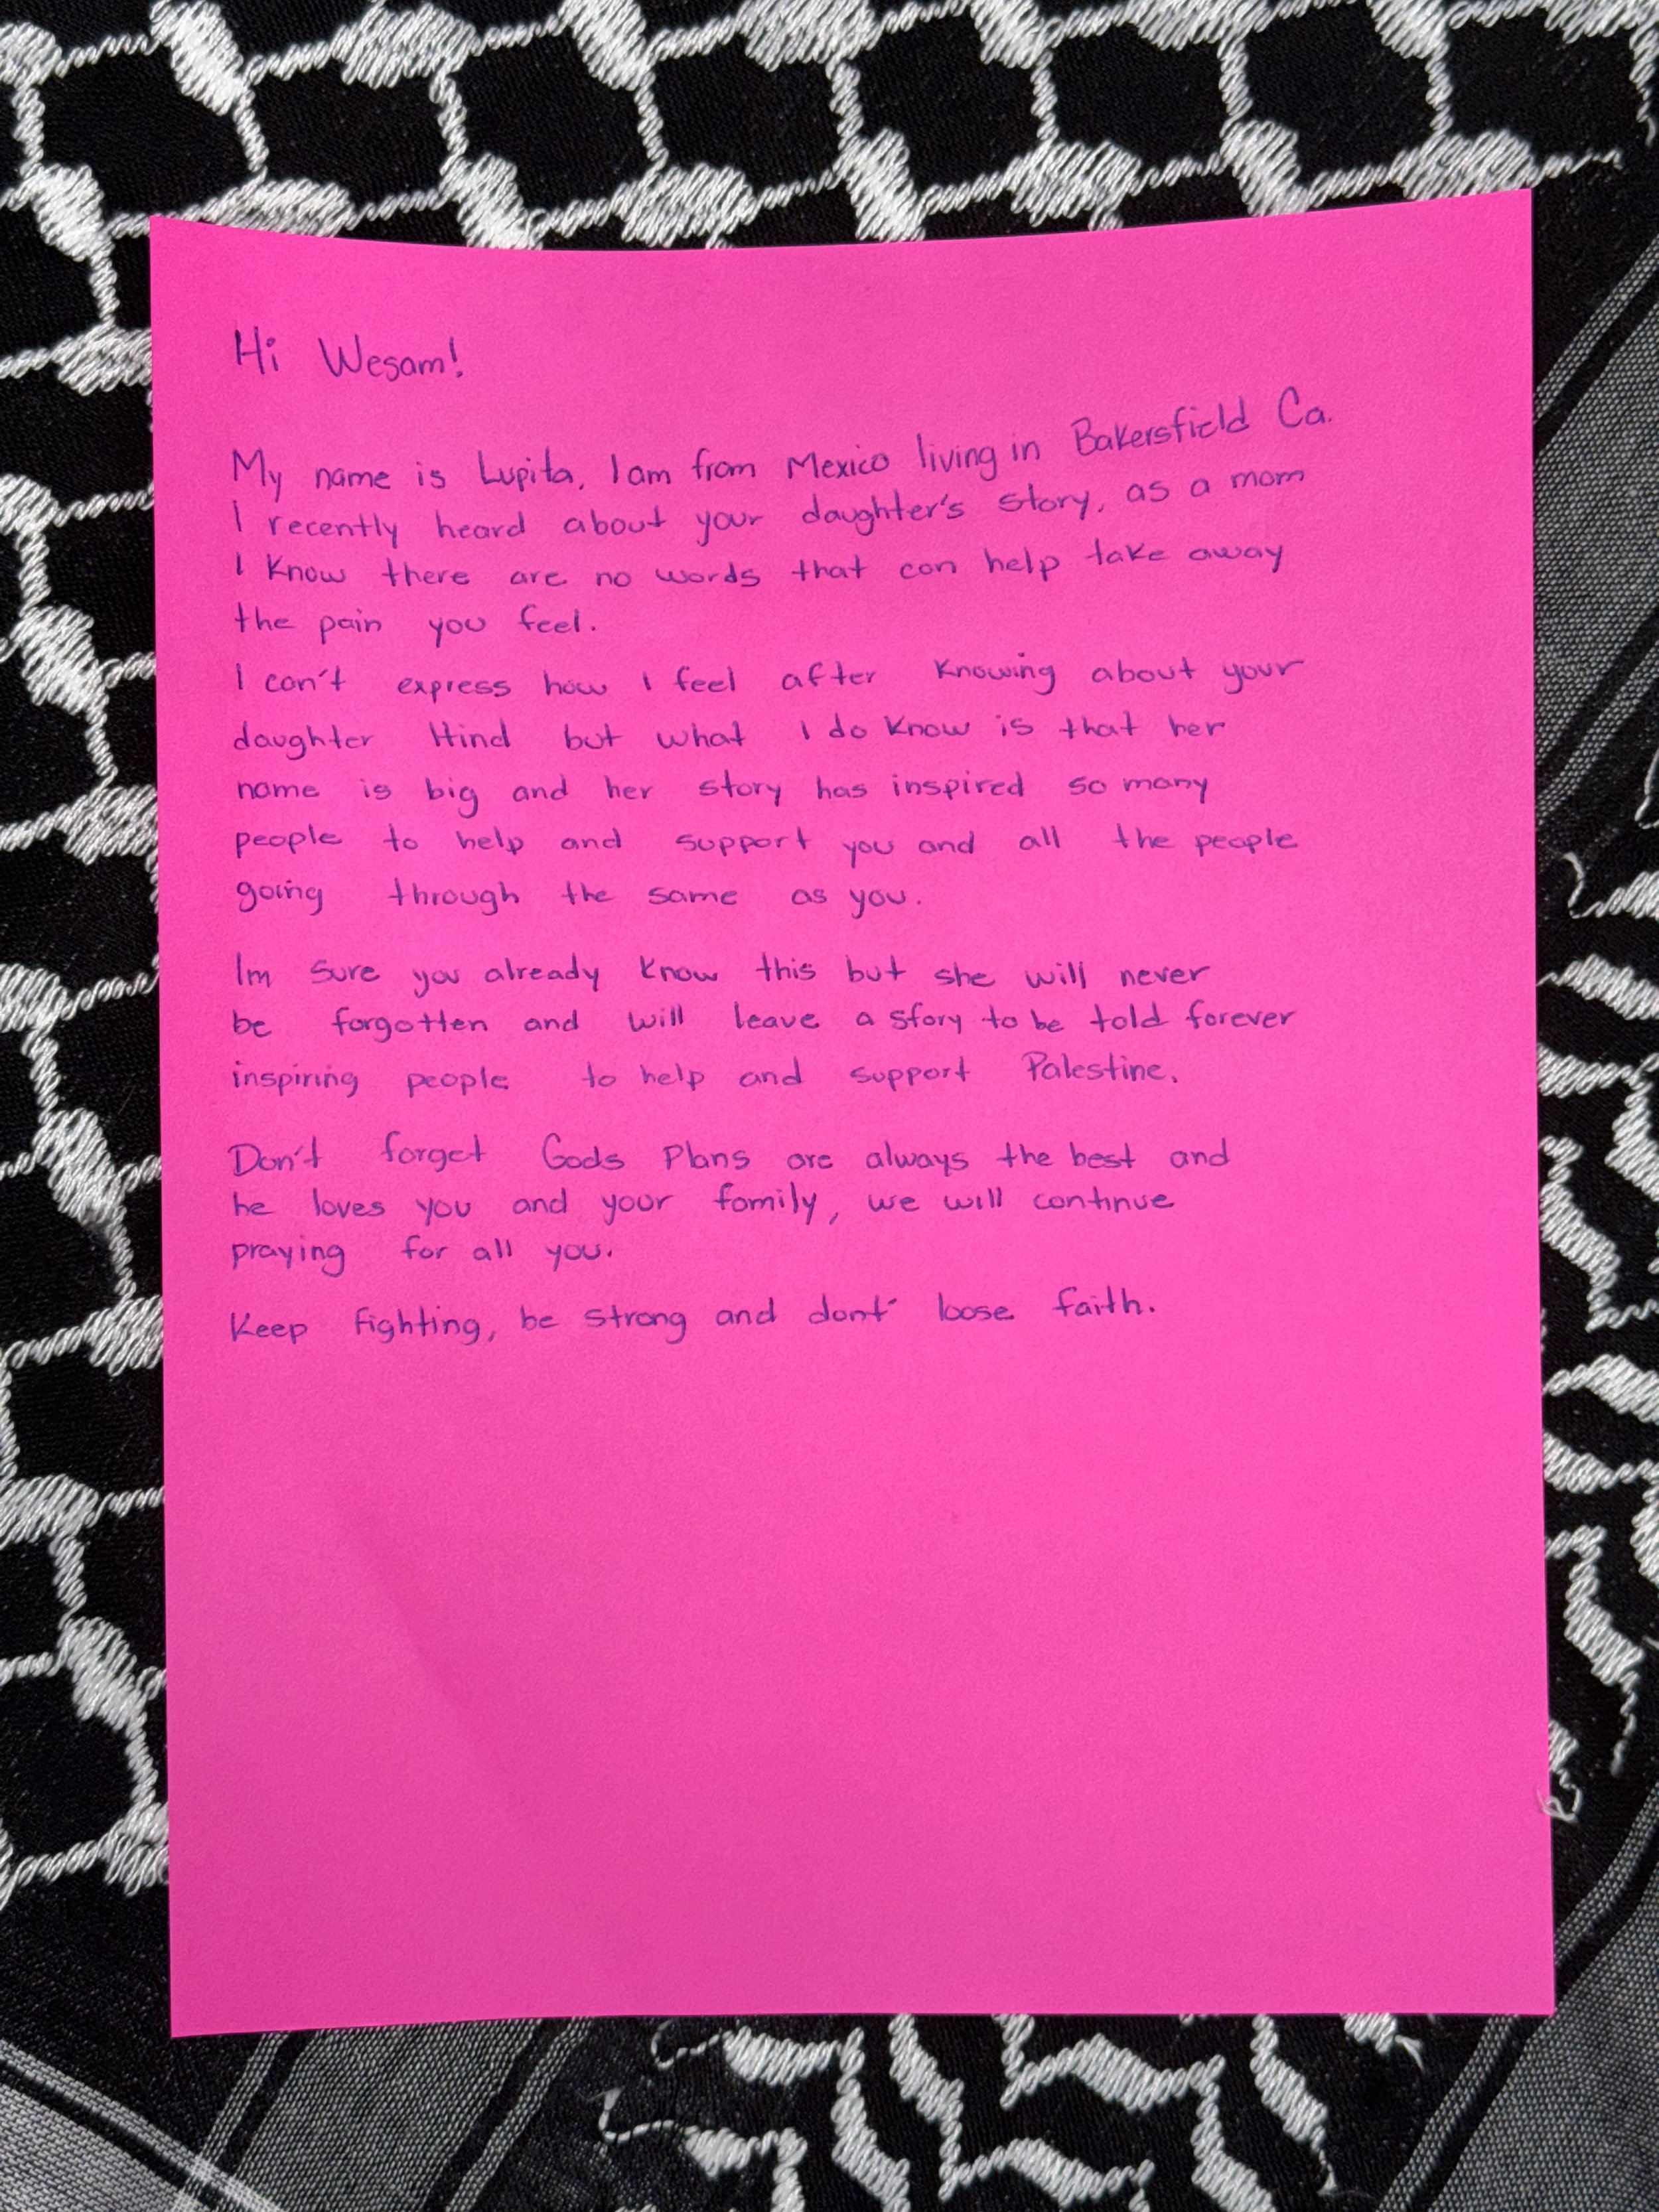 Hi Wesam!
My name is Lupita, I am from Mexico living in Bakersfield Ca.
I recently heard about your daughter's story, as a mom
I know there are no words that can help take away
the pain you feel.
I can't express how I feel after knowing about your
daughter Hind but what I do know is that her
name is big and her story has inspired so many
people to help and support you and all the people
going through the same as you.
Im sure you already know this but she will never
be forgotten and will leave a story to be told forever
inspiring people to help and support Palestine.
Don't forget Gods Plans are always the best and
he loves you and your family, we will continue
praying for all you.
Keep fighting, be strong and dont' loose faith.